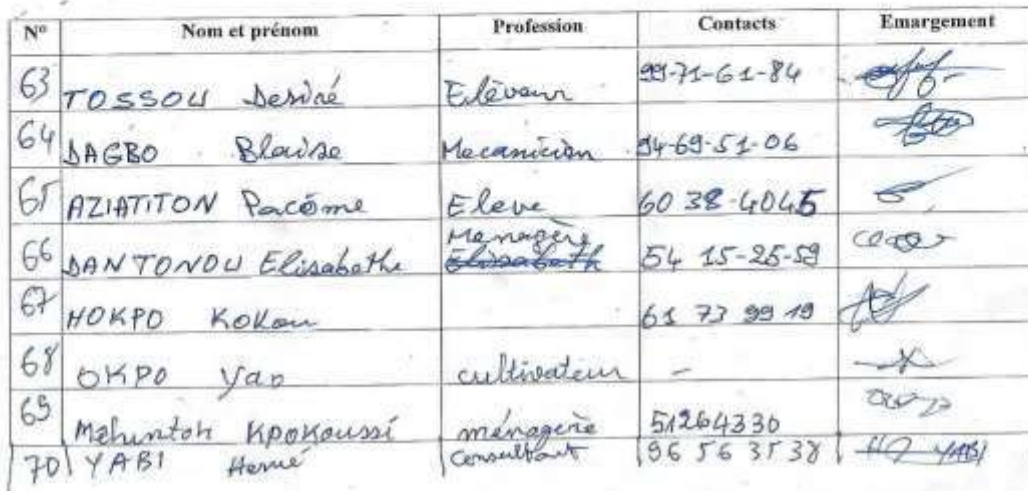 N° Nom et prénom Profession Contacts Emargement
63 TOSSOU Desiré Elèveur 99-71-61-84
64 DAGBO Blaise Mecanicien 94-69-51-06
65 AZIATITON Pacôme Eleve 60 38-4045
Menagère
66 DANTONDU Elisabeth Elisabeth 54 15-25-59
67 HOKPO Kokou 61 73 99 19
68 OKPO Yao cultivateur -
69 Mehintoh Kpokoussi ménagère 51264330
70 YABI Hervé Consultant 96 56 35 38 YABI